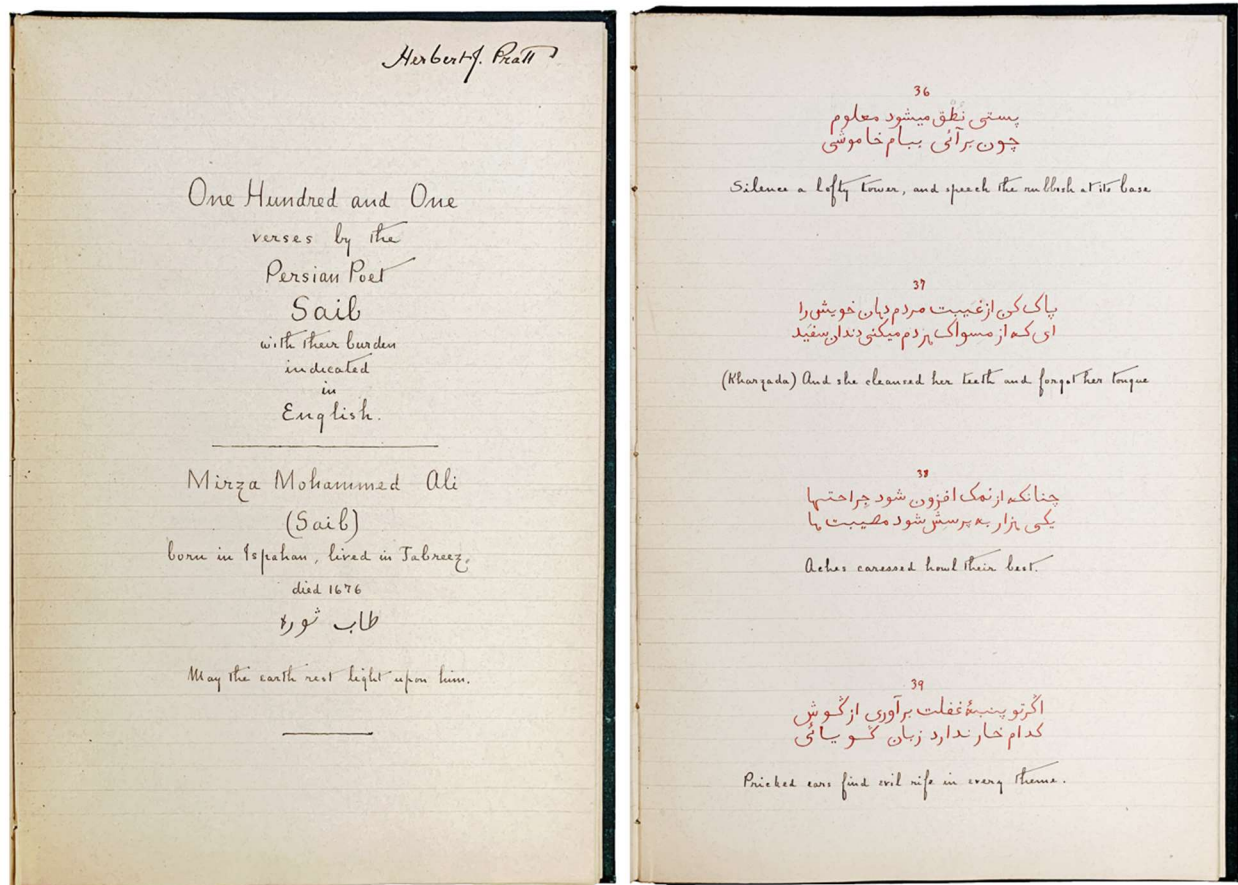 Herbert J. Pratt
One Hundred and One
verses by the
Persian Poet
Saib
with their burden
indicated
in
English.
Mirza Mohammed Ali
(Saib)
born in Ispahan, lived in Tabreez,
died 1676
طاب ثوره
May the earth rest light upon him.
36
پستی نُطْق میشود معلوم
چون برآئی ببام خاموشی
Silence a lofty tower, and speech the rubbish at its base
37
پاک کن از غیبت مردم دهان خویش را
ای که از مسواک هردم میکنی دندان سفید
(Kharzada) And she cleansed her teeth and forgot her tongue
38
چنانکه از نمک افزون شود جراحتها
یکی هزار به پرسش شود مصیبت ها
Aches caressed howl their best.
39
اگر تو پنبهٔ غفلت برآوری از گوش
کدام خار ندارد زبان گویائی
Pricked ears find evil rife in every theme.